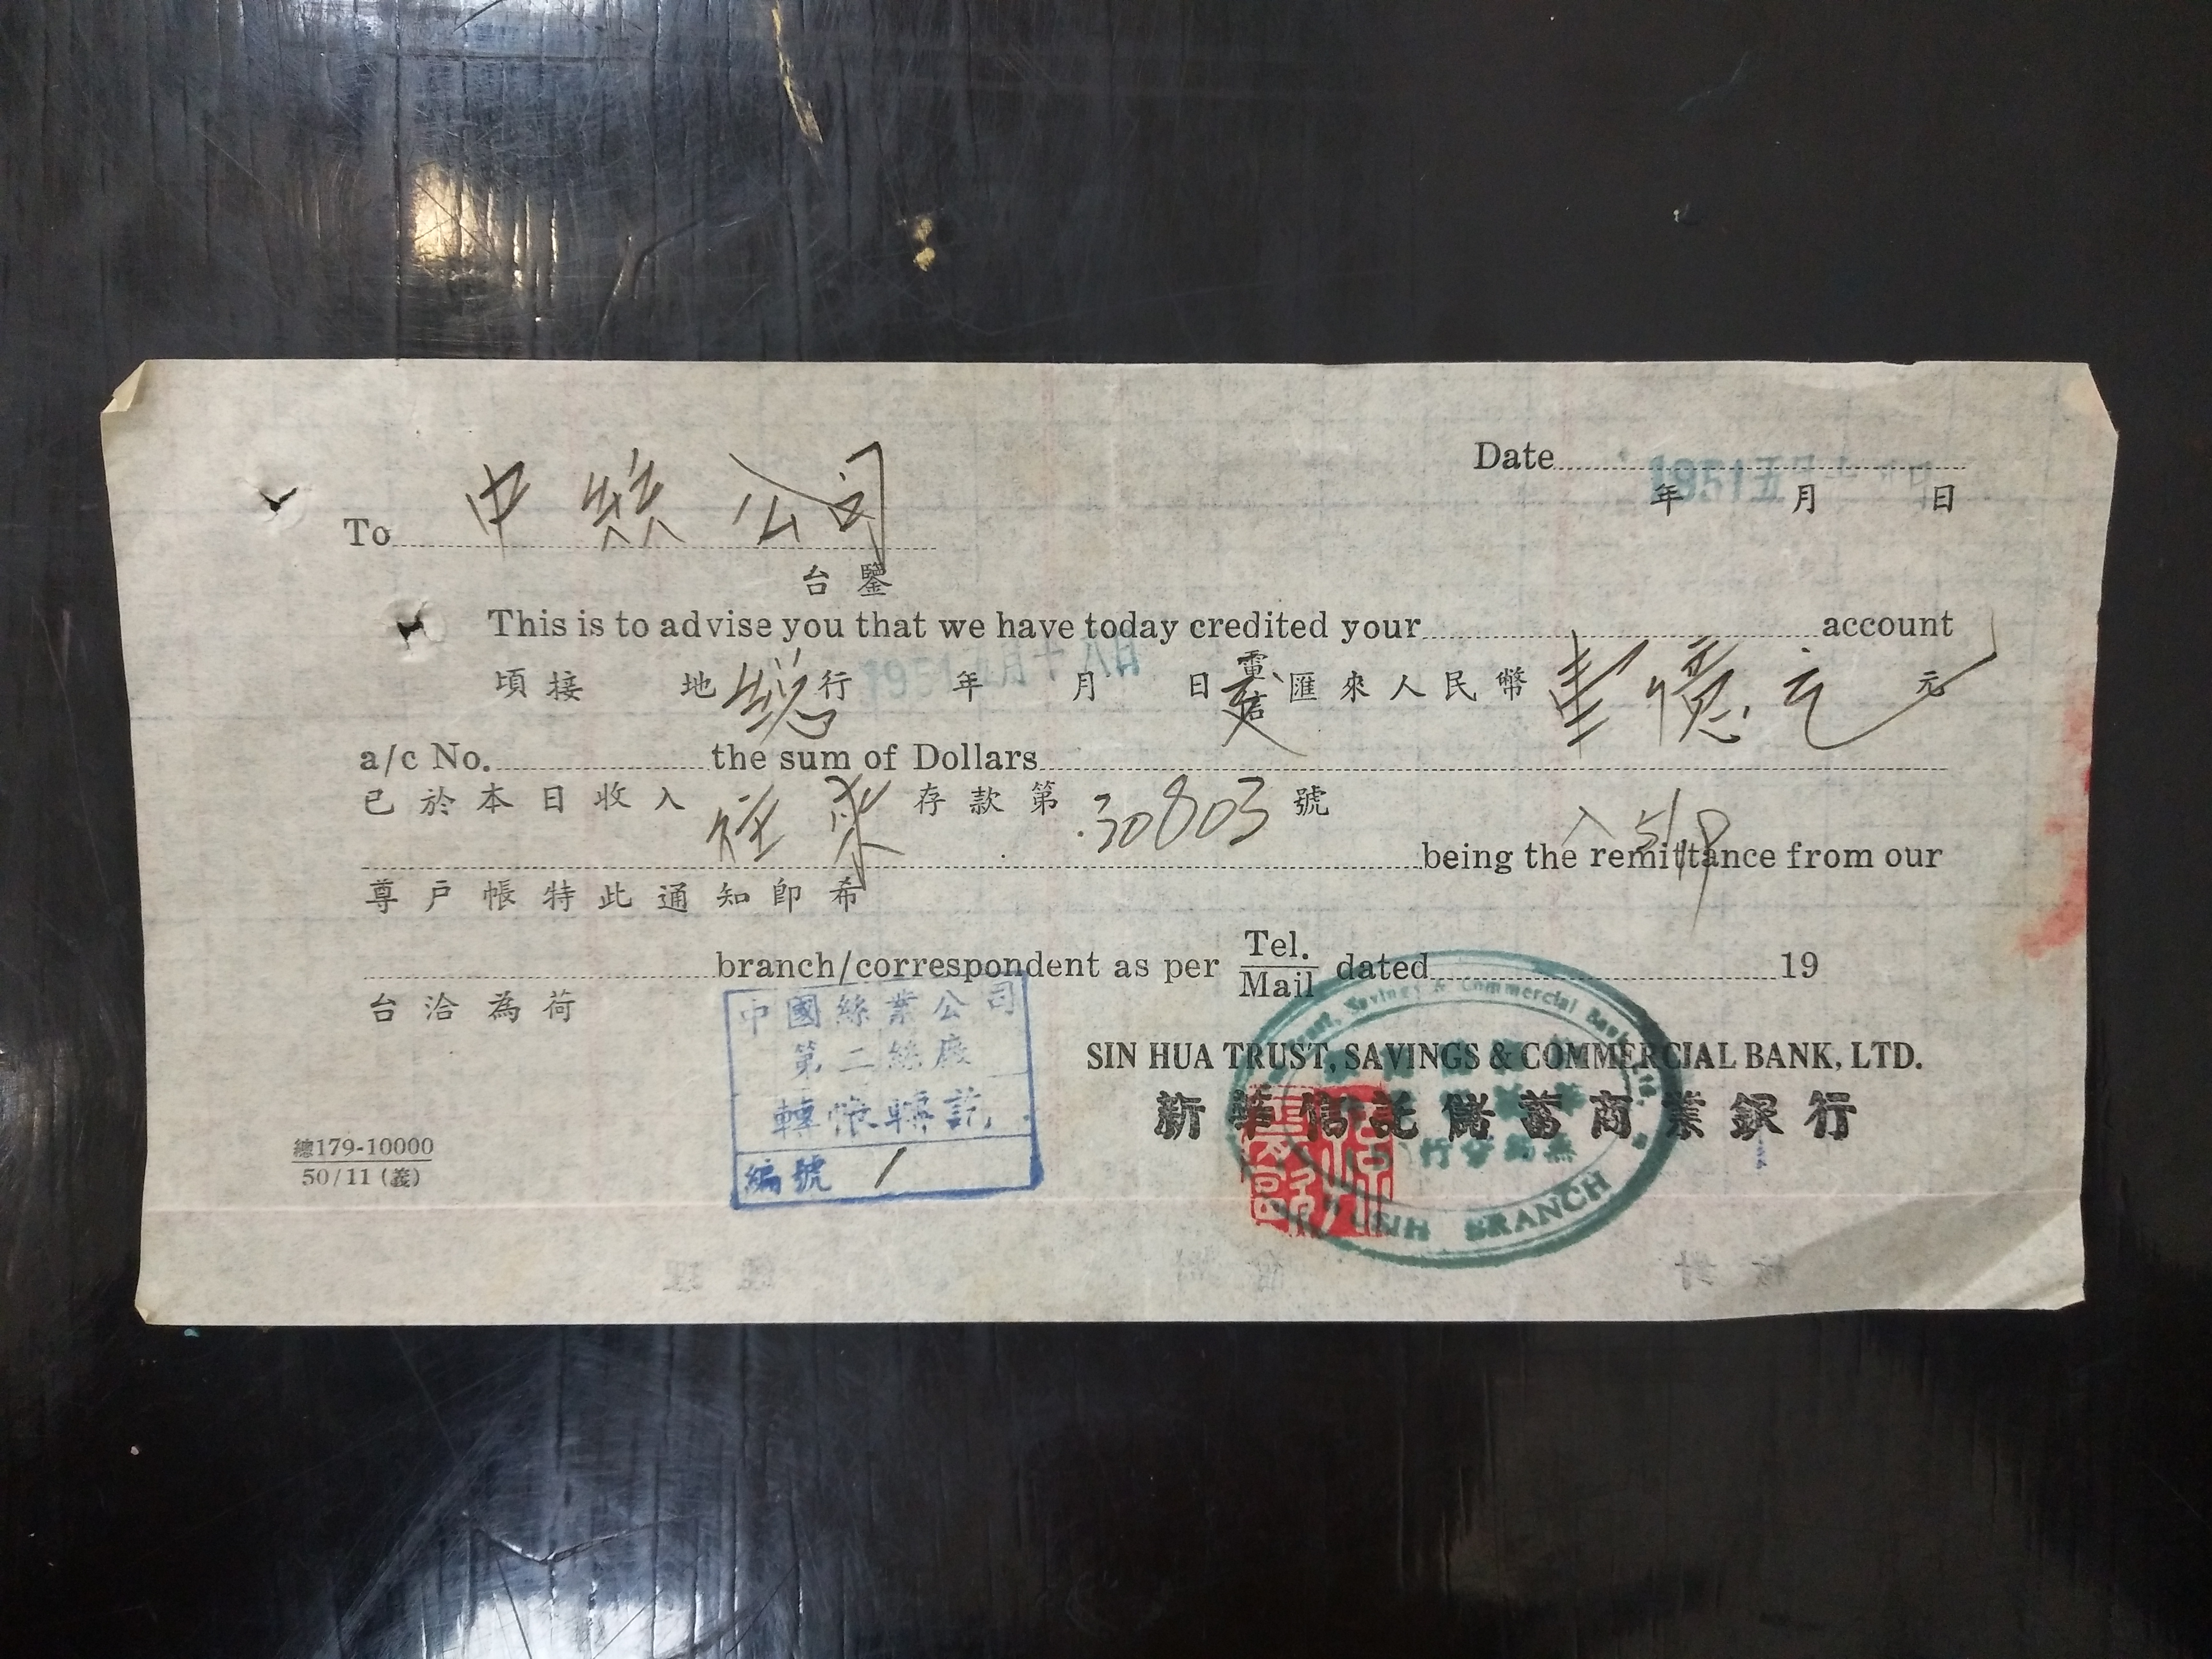 Date
年 月 日
To 中絲公司
台鑒
This is to advise you that we have today credited your account
頃接 地總行 年 月 日 匯來人民幣壹億元 元
a/c No. the sum of Dollars
已於本日收入往來存款第30803號
入 5/18
being the remittance from our
尊戶帳特此通知即希
branch/correspondent as per Tel./Mail dated 19
台洽為荷
SIN HUA TRUST, SAVINGS & COMMERCIAL BANK, LTD.
新華信託儲蓄商業銀行
Savings & Commercial Bank
BRANCH
中國絲業公司
第二絲廠
轉帳
編號 1
總179-10000
50/11 (義)